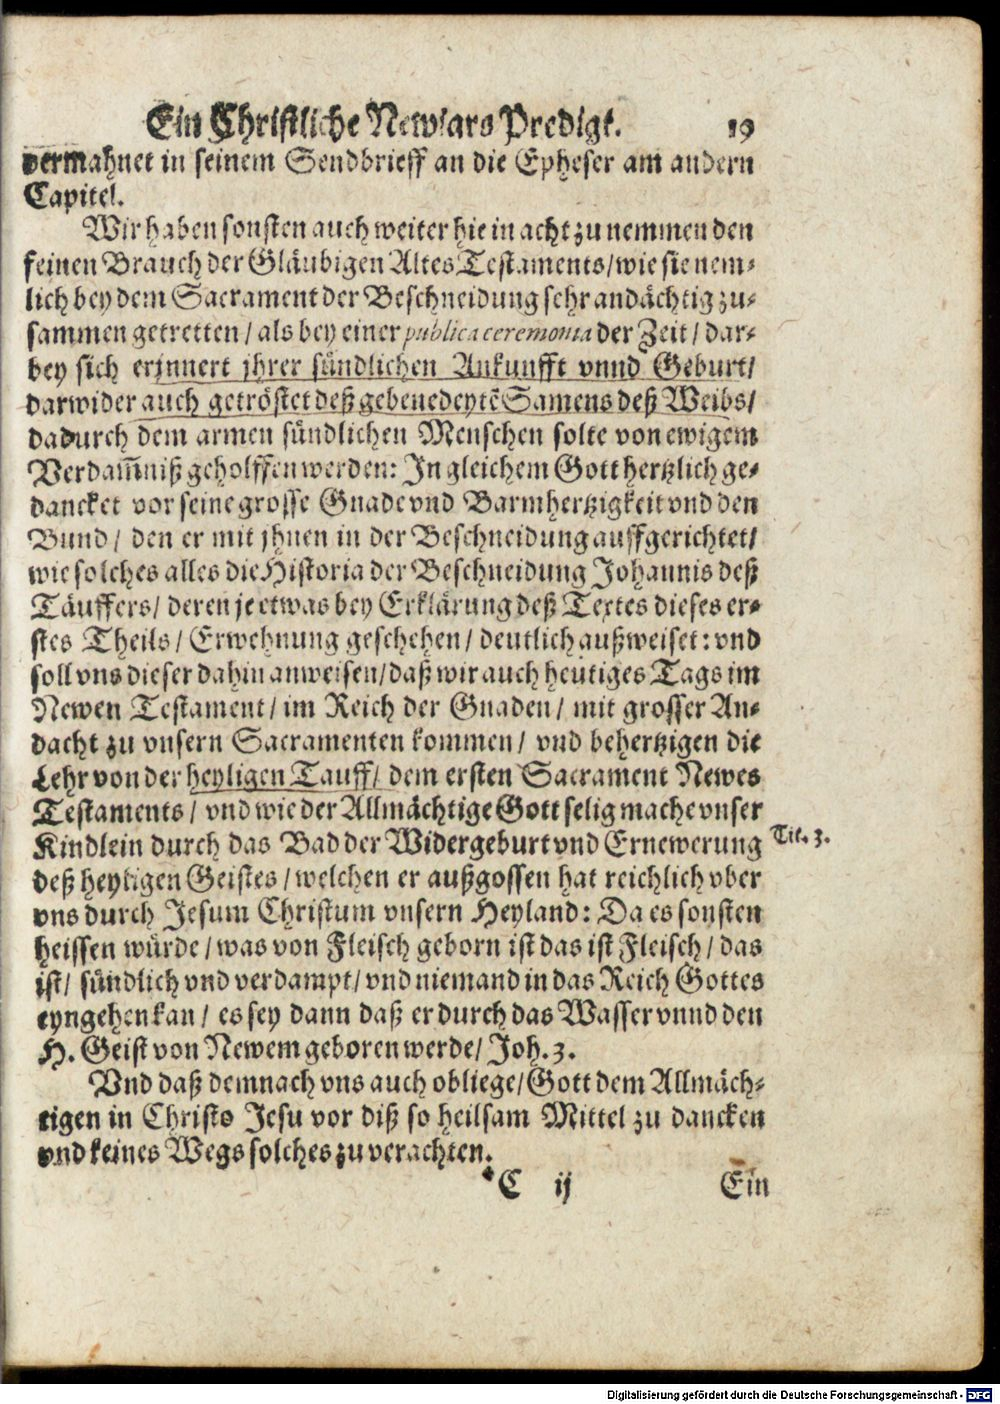 Ein Christliche Newjars Predigt. 19
vermahnet in seinem Sendbrieff an die Epheser am andern
Capitel.
Wir haben sonsten auch weiter hie in acht zu nemmen den
feinen Brauch der Gläubigen Altes Testaments/ wie sie nem-
lich bey dem Sacrament der Beschneidung sehr andächtig zu-
sammen getretten/ als bey einer publica ceremonia der Zeit/ dar-
bey sich erjnnert jhrer sündlichen Ankunfft vnnd Geburt/
darwider auch getröstet deß gebenedeytẽ Samens deß Weibs/
dadurch dem armen sündlichen Menschen solte von ewigem
Verdam̃niß geholffen werden: In gleichem Gott hertzlich ge-
dancket vor seine grosse Gnade vnd Barmhertzigkeit vnd den
Bund/ den er mit jhnen in der Beschneidung auffgerichtet/
wie solches alles die Historia der Beschneidung Johannis deß
Täuffers/ deren je etwas bey Erklärung deß Textes dieses er-
stes Theils/ Erwehnung geschehen/ deutlich außweiset: vnd
soll vns dieser dahin anweisen/ daß wir auch heutiges Tags im
Newen Testament/ im Reich der Gnaden/ mit grosser An-
dacht zu vnsern Sacramenten kommen/ vnd behertzigen die
Lehr von der heyligen Tauff/ dem ersten Sacrament Newes
Testaments/ vnd wie der Allmächtige Gott selig mache vnser
Kindlein durch das Bad der Widergeburt vnd Ernewerung
Tit. 3.
deß heyligen Geistes/ welchen er außgossen hat reichlich vber
vns durch Jesum Christum vnsern Heyland: Da es sonsten
heissen würde/ was von Fleisch geborn ist das ist Fleisch/ das
ist/ sündlich vnd verdampt/ vnd niemand in das Reich Gottes
eyngehen kan/ es sey dann daß er durch das Wasser vnnd den
H. Geist von Newem geboren werde/ Joh. 3.
Vnd daß demnach vns auch obliege/ Gott dem Allmäch-
tigen in Christo Jesu vor diß so heilsam Mittel zu dancken
vnd keines Wegs solches zu verachten.
C ij Ein
Digitalisierung gefördert durch die Deutsche Forschungsgemeinschaft - DFG